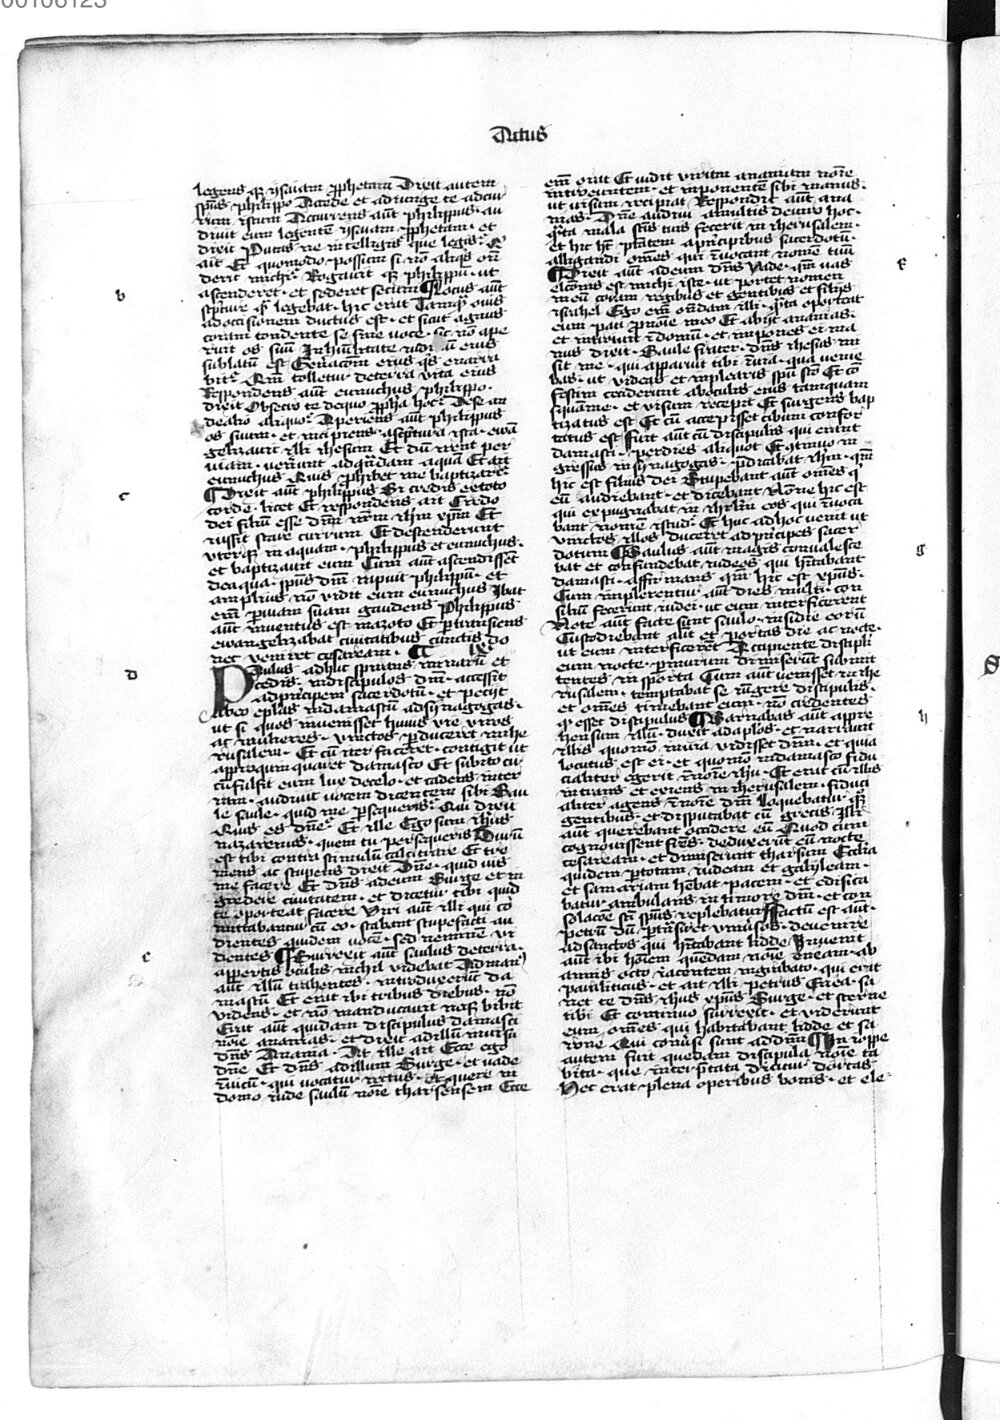 00106123
Actus
legens q3 ysaiam ꝓphetam Dixit autem
spūs philippo Accede et adiunge te ad cur
rum istum Accurrens aūt philippus · au
diuit eum legentē ysaiam ꝓphetam · et
dixit Putas ne intelligis que legis
ait Et quomodo possum si nō aliq̄s oñ
derit michi · Rogauit q3 philippū · ut
ascenderet · et sederet secum ¶ Locus aūt
sc̄pture q̄ legebat · hic erat Tamq̄ ouis
ad occisionem ductus est · et sicut agnus
coram tondente se sine uoce · sic nō ape
ruit os suū In hūilitate iudiciū eius
sublatū est Generacōem eius q̄s enarra
bit · Qm̄ tolletur de terra vita eius
Respondens aūt eunuchus philippo ·
dixit Obsecro te de quo ꝓpha hoc De se an
de alio aliquo · Aperiens aūt philippus
os suum · et incipiens · a sc̄ptura ista · ewā
gelizauit illi ihesum Et dū irent per
uiam · venerunt ad quādam aquā Et ait
eunuchus Quis ꝓhibet me baptizare
¶ Dixit aūt philippus Si credis ex toto
corde · licet Et respondens ait Credo
dei filiū esse dn̄m nr̄m ihm xp̄m Et
iussit stare currum Et descenderunt
vterq3 in aquam · philippus et eunuchus ·
et baptizauit eum Cum aūt ascendisset
de aqua · spūs dn̄i rapuit philippū · et
amplius nō vidit eum eunuchus Ibat
em̄ ꝑ uiam suam gaudens Philippus
aūt inuentus est in azoto Et ꝑtransiens
ewangelizabat ciuitatibus cunctis do
nec veniret cesaream · ¶ ix
Saulus adhuc spirans minarū et
cedis · in discipulos dn̄i · accessit
ad principem sacerdotū · et peciit
ab eo ep̄las in damascū ad synagogas ·
ut si quos inuenisset huius vie viros
ac mulieres · vinctos ꝑduceret in ihe
rusalem · Et cū iter faceret · contigit ut
appropinquaret damasco Et subito cir
cūfulsit eum lux de celo · et cadens in ter
ram · audiuit uocem dicentem sibi Sau
le saule · quid me ꝑsequeris Qui dixit
Quis es dn̄e Et ille Ego sum ihus
nazarenus · quem tu persequeris Durū
est tibi contra stimulū calcitrare Et tre
mens ac stupens dixit Dn̄e · quid uis
me facere Et dn̄s ad eum Surge et in
gredere ciuitatem · et dicetur tibi quid
te oporteat facere Viri aūt illi qui cō
mittabantur cū eo · stabant stupefacti au
dientes quidem uocē · sed neminē vi
dentes ¶ Surrexit aūt saulus de terra ·
appertis oculis nichil videbat Ad man
aūt illū trahentes · introduxerūt da
mascū Et erat ibi tribus diebus · nō
videns · et nō manducauit neq3 bibit
Erat aūt quidam discipulus damasci
noīe ananias · et dixit ad illū in uisu
dn̄s Anania · At ille ait Ecce ego
dn̄e Et dn̄s ad illum Surge · et uade
in uicū · qui uocatur rectus · et quere in
domo iude saulū noīe tharsensem Ecce
em̄ orat Et uidit virum ananiam noīe
introeuntem · et inponentē sibi manus ·
ut uisum recipiat Respondit aūt ana
nias · Dn̄e audiui a multis de uiro hoc ·
q̄ta mala sc̄is tuis fecerit in iherusalem ·
et hic ht̄ ptātem a principibus sacerdotū ·
alligandi om̄es qui inuocant nomē tuū
¶ Dixit aūt ad eum dn̄s Vade · qm̄ uas
elc̄onis est michi iste · ut portet nomen
meū coram regibus et gentibus et filijs
israhel Ego em̄ on̄dam illi · q̄ta oporteat
eum pati ꝓ noīe meo Et abijt ananias ·
et introiuit in domū · et inponens ei ma
nus dixit · Saule frater · dn̄s ihesus mi
sit me · qui apparuit tibi in uia · qua venie
bas · ut videas et inplearis spū sc̄o Et cō
festim ceciderunt ab oculis eius tamquam
squame · et visum recepit Et surgens bap
tizatus est Et cū accepisset cibum confor
tatus est Fuit aūt cū discipulis qui erant
damasci · per dies aliquot Et 9tinuo in
gressus in synagogas · p̄dicabat ihm · qm̄
hic est filius dei Stupebant aūt om̄es q̄
eū audiebant · et dicebant Nōne hic est
qui expugnabat in ihrlm eos qui inuoca
bant nomē istud Et huc ad hoc venit ut
vinctos illos duceret ad p̄ncipes sacer
dotum ¶ Saulus aūt magis conualesce
bat et confundebat iudeos qui h̄itabant
damasci · affirmans qm̄ hic est xp̄us ·
Cum implerentur aūt dies multi · con
siliū fecerunt iudei · ut eum interficerent
Note aūt facte sunt saulo · insidie eorū
Custodiebant aūt et portas die ac nocte ·
ut eum interficerēt Accipiente discipli
eum nocte · ꝑ murum dimiserūt submit
tentes in sporta Cum aūt venisset in ihe
rusalem · temptabat se iūgere discipulis ·
et om̄es timebant eum · nō credentes
q esset discipulus ¶ Barnabas aūt appre
hensum illū · duxit ad ap̄los · et narrauit
illis quomō in via vidisset dn̄m · et quia
locutus est ei · et quomō in damasco fidu
cialiter egerit in noīe ihu · Et erat cū illis
intrans et exiens in iherusalem · fiduci
aliter agens in noīe dn̄i Loquebatur q3
gentibus · et disputabat cū grecis Illi
aūt querebant occidere eū Quod cum
cognouissent fr̄es · deduxerūt eū nocte
cesaream · et dimiserunt tharsum Ecc̄lia
quidem ꝑ totam iudeam et galyleam ·
et samariam h̄ebat pacem · et edifica
batur ambulans in timore dn̄i · et con
solac̄oe sc̄i spūs replebatur ¶ Factū est aūt ·
petrū dū ꝑtransiret vniūsos · deuenire
ad sanctos qui h̄itabant lidde Inuenit
aūt ibi hoīem quēdam noīe eneam · ab
annis octo iacentem in grabato · qui erat
paraliticus · et ait illi petrus Enea · sa
net te dn̄s ihus xp̄us Surge · et sterne
tibi Et continuo surrexit · et viderunt
eum om̄es qui habitabant lidde et sa
rone Qui conūsi sunt ad dn̄m ¶ In ioppe
autem fuit quedam discipula noīe ta
bita · que interp̄tata dicitur dorcas
Hec erat plena operibus bonis · et ele
b
c
d
e
f
g
h